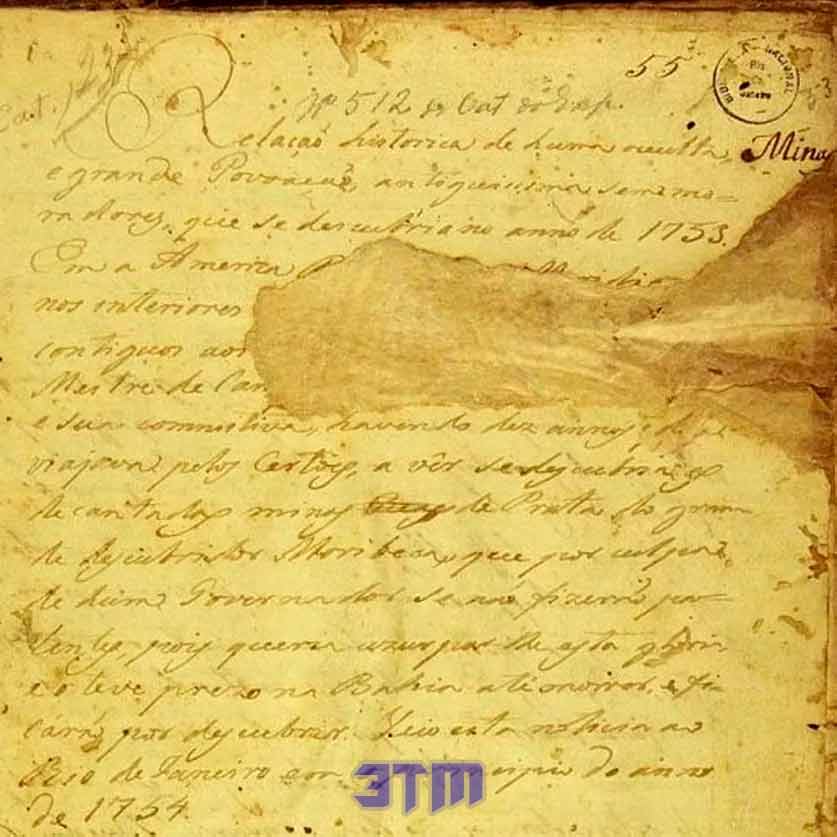 55
BIBL NACIONAL RIO DE JANEIRO
Nº 512 do Cat. da Exp.
Relaçaõ historica de huma occulta, Minas
e grande Povoaçaõ, antiguissima sem mo=
radores, que se descubriu no anno de 1753.
Em a America
nos interiores
contiguos aos
Mestre de Can
e sua comitiva, havendo dez annos,
viajava pelos Certões, a vêr se descubria as
decantadas minas de Prata do gran
de descubridor Moribeca, que por culpa
de hum Governador se naõ fizeraõ pa=
tentes, pois queria uzurparlhe esta gloria
e o teve prezo na Bahia até morrer, e fi
caraõ por descubrir. Veio esta noticia ao
Rio de Janeiro em principio do anno
de 1754.
3TM